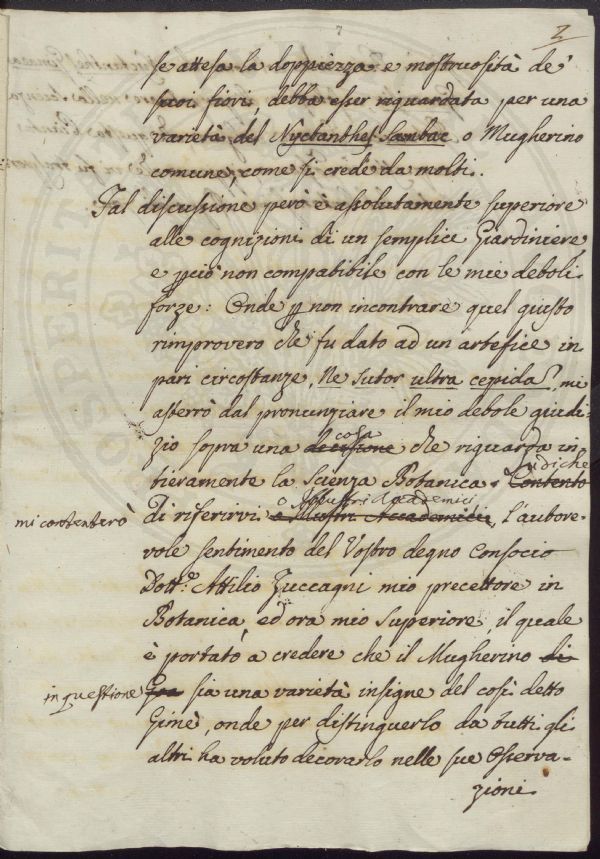 2
se attesa la doppiezza e mostruosità de'
suoi fiori, debba esser riguardata per una
varietà del Nyctanthes Sambac o Mugherino
comune, come si crede da molti.
Tal discussione però è assolutamente superiore
alle cognizioni di un semplice Giardiniere
e pciò non compatibile con le mie deboli
forze: Onde p non incontrare quel giusto
rimprovero che fu dato ad un artefice in
pari circostanze, Ne sutor ultra cepidas, mi
asterrò dal pronunziare il mio debole giudi-
cosa
zio sopra una decisione che riguarda in-
tieramente la Scienza Botanica. Contento
o Illustri Accademici
mi contenterò
di riferirvi o Illustri Accademici, l'autore-
vole sentimento del Vostro degno Consocio
Dott.e Attilio Zuccagni mio precettore in
Botanica, ed ora mio Superiore, il quale
è portato a credere che il Mugherino di
in questione
Goa sia una varietà insigne del così detto
Gimè, onde per distinguerlo da tutti gli
altri ha voluto decorarlo nelle sue Osserva-
zioni